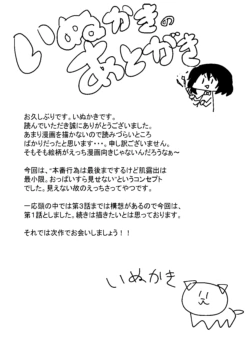 いぬかきの
あとがき
お久しぶりです。いぬかきです。
読んでいただき誠にありがとうございました。
あまり漫画を描かないので読みづらいところ
ばかりだったと思います・・・。申し訳ございません。
そもそも絵柄がえっち漫画向きじゃないんだろうなぁ～
今回は、"本番行為は最後まですけど肌露出は
最小限。おっぱいすら見せない"というコンセプト
でした。見えない故のえっちさってやつです。
一応頭の中では第3話までは構想があるので今回は、
第1話としました。続きは描きたいとは思っております。
それでは次作でお会いしましょう！！
いぬかき